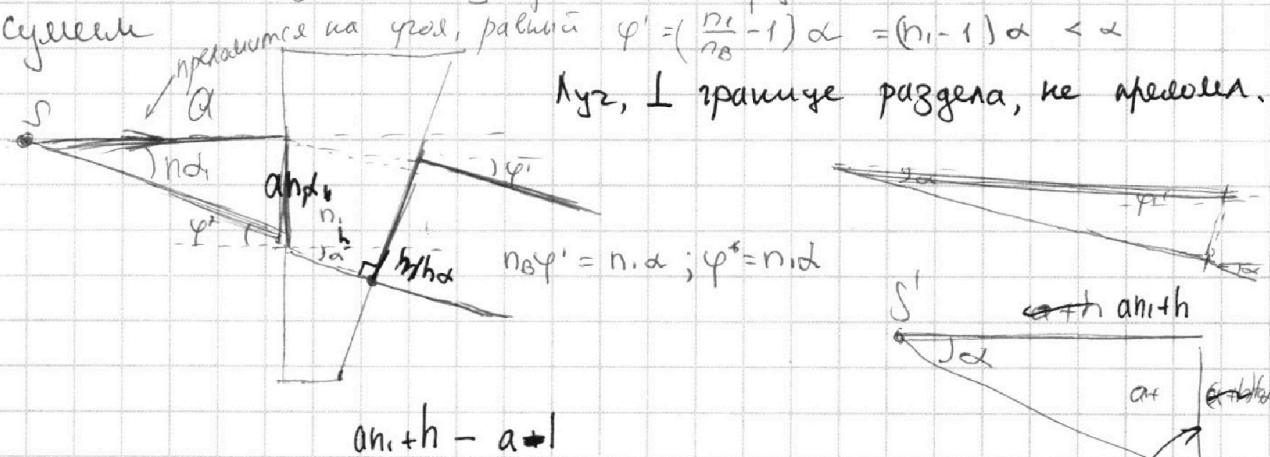 сумеем
преломится на угол, равный φ' = (n₁/nв - 1) α = (n₁ - 1) α < α
Луч, ⊥ границе раздела, не прелом.
S
a
nα
anα
φ'
φ"
n₁
h
α
hα
2α
φ'
nвφ' = n₁α ; φ" = n₁α
α
S'
an₁+h
α
an₁+h - a - l